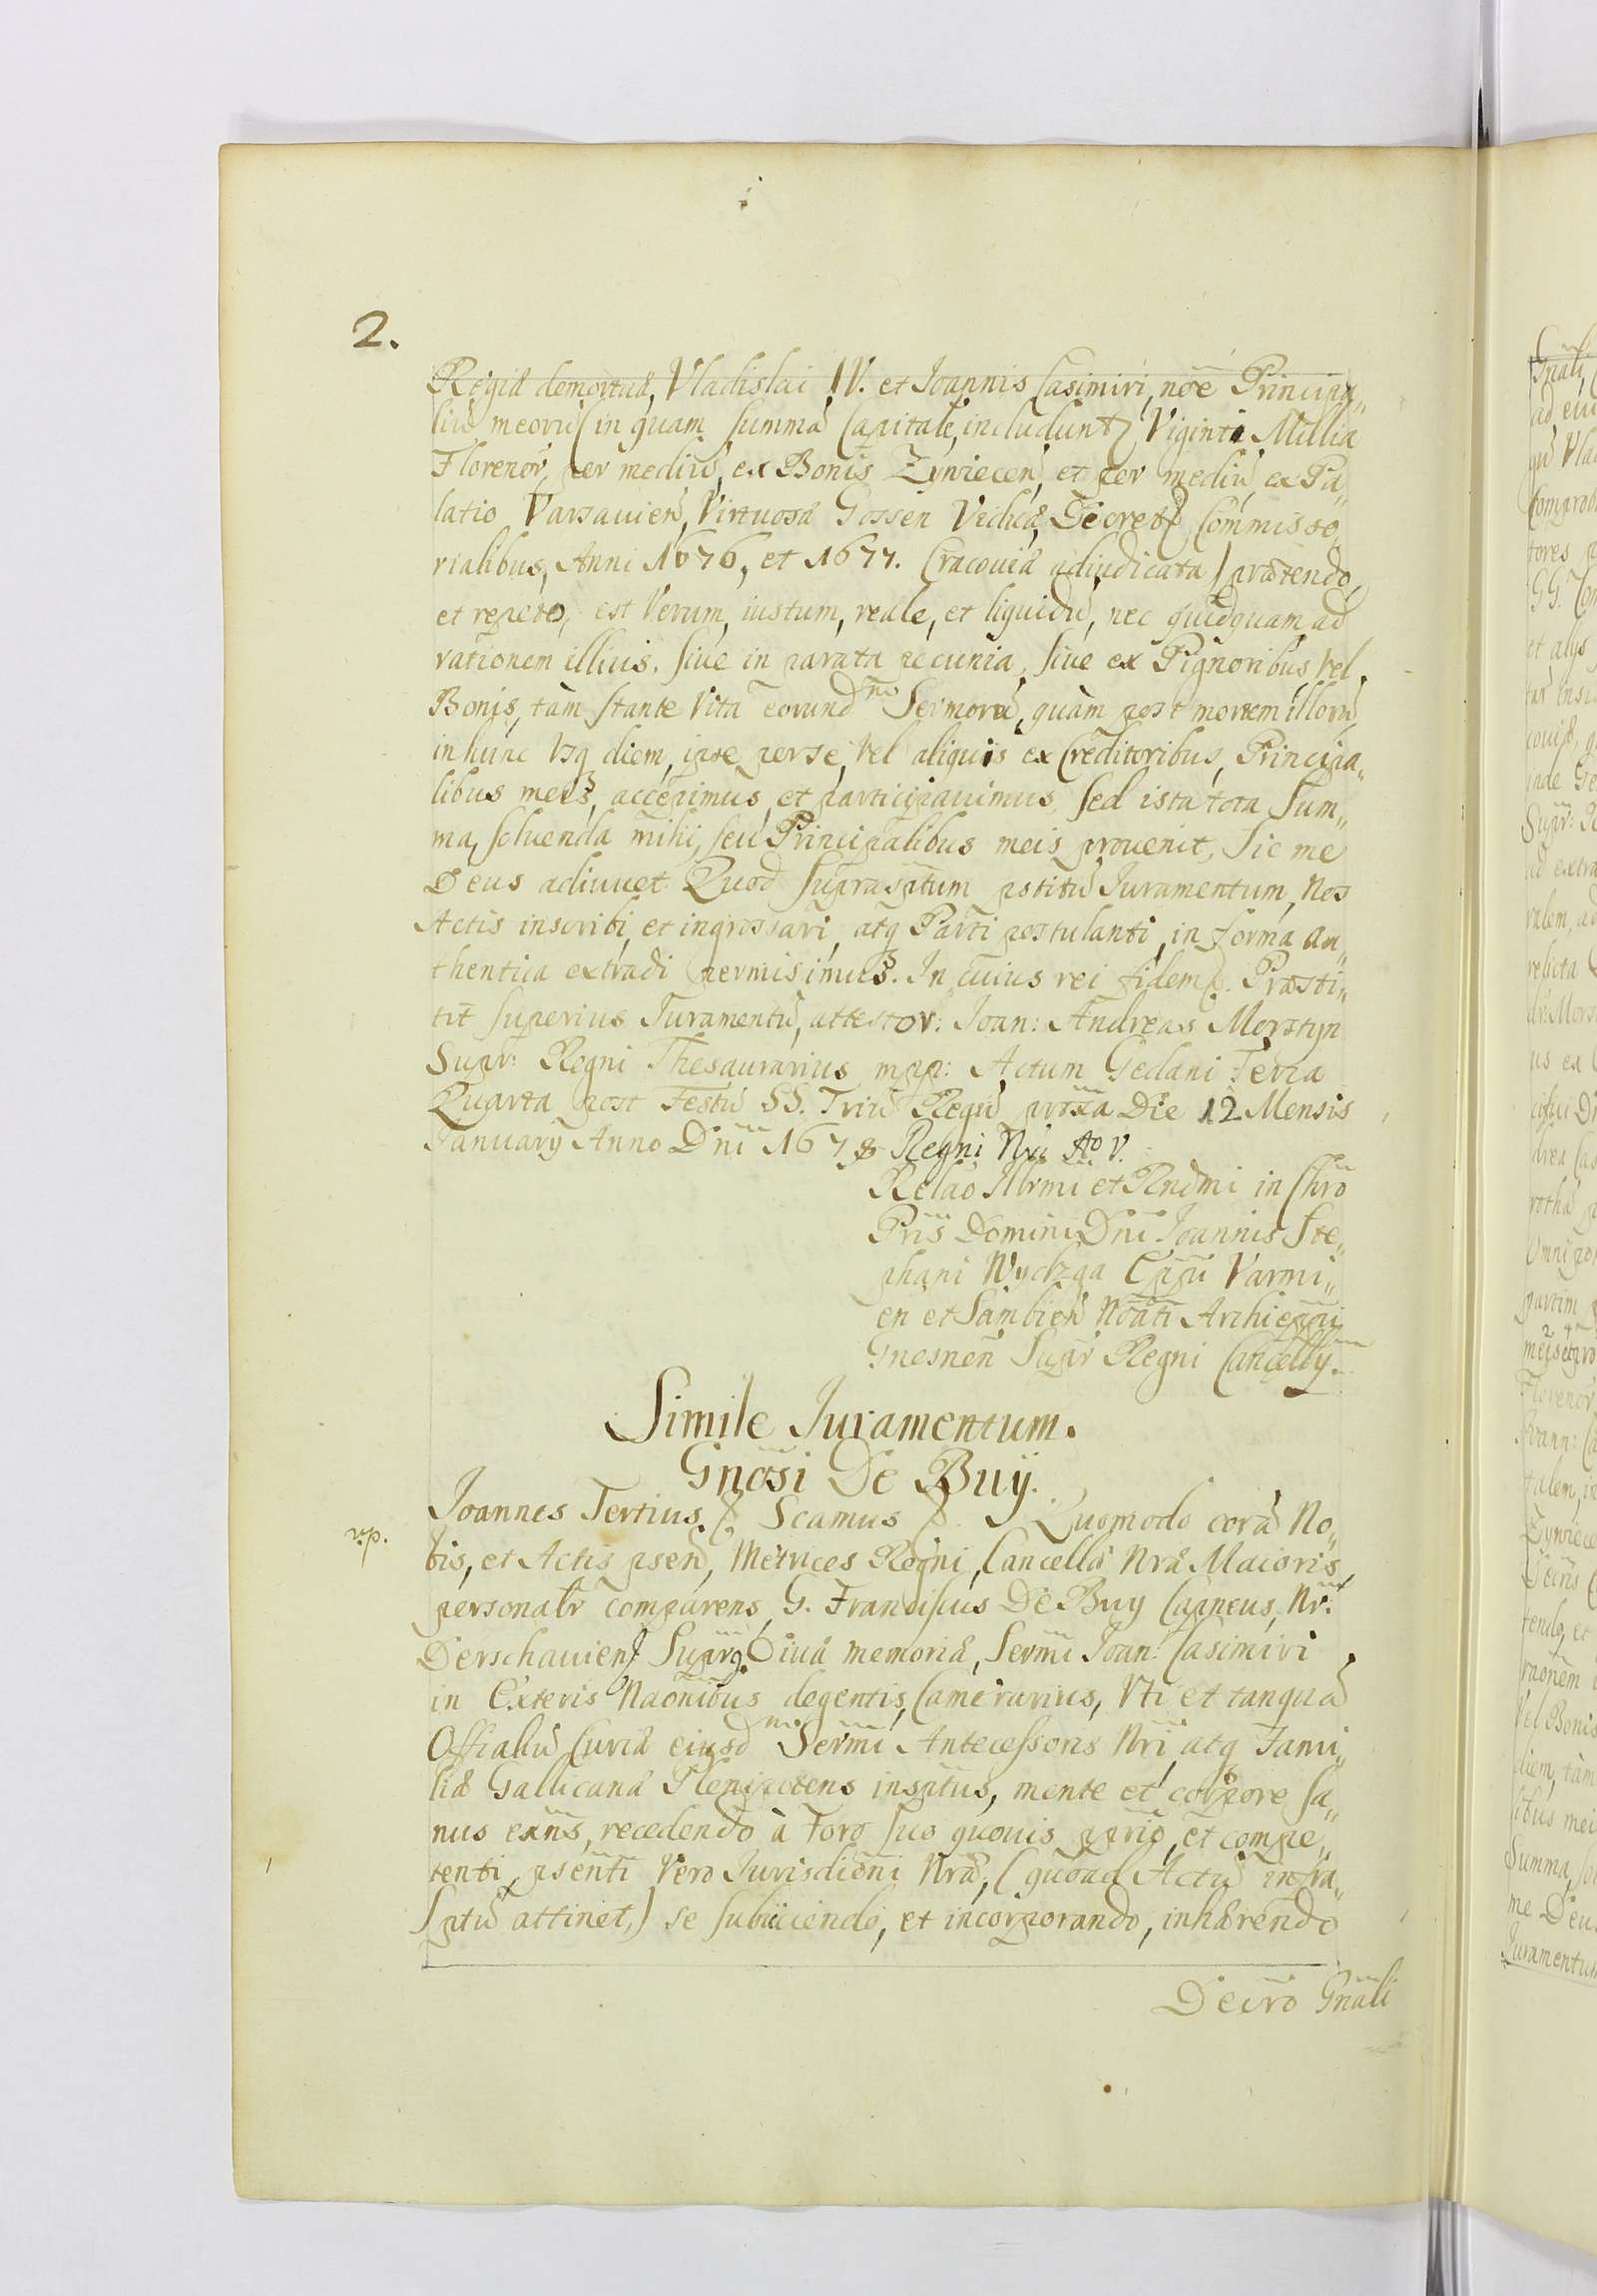 2.
Regiæ demortuæ, Vladislai IV. et Joannis Casimiri, nõe Principa„
liũ meorũ (in quam summã Capitalẽ, includunt̃ Viginti Millia
Florenor̃, per mediũ, ex Bonis Zywiecen̄, et per mediũ ex Pa„
latio Varsauien̄, Virtuosæ Gossen Decret̃ Commisso„
rialibus, Anni 1676, et 1677. Cracouiæ adiudicata) prætendo,
et repeto, est Verum, iustum, reale, et liquidũ, nec quidquam ad
rationem illius. siue in parata pecunia, siue ex Pignoribus vel
Bonis, tàm stante Vita eorund Sermorũ, quàm post mortem illorũ
in hunc vsq diem, ipse perse, vel aliquis ex Creditoribus, Principa„
libus meis, accepimus, et participauimus, sed ista tota Sum„
ma, soluenda mihi, seu Principalibus meis prouenit, sic me
Deus adiuuet. Quod suprasptum pstitũ Juramentum, Nos
Actis inscribi, et ingrossari, atq Parti postulanti, in forma au„
thentica extradi permisimus. In cuius rei fidem &. Præsti„
tit superius Juramentũ, attestor: Joan: Andreas Morstyn
Supr: Regni Thesaurarius mpp: Actum Gedani Feria
Quarta post Festũ SS. Triũ Regũ proxa Die 12 Mensis
January Anno Dni 1678 Regni Nri Ao V.
Relao Illrmi et Rndmi in Chro
Pris Domini Dni Joannis Ste„
phani Wydzga Eppi Varmi„
en et Sambien̄ Noati Archieppi
Gnesnen̄ Supr Regni Cancellÿ.
Simile Juramentum.
Gnosi De Buÿ.
Joannes Tertius & Scamus &. Quomodo corã No„
bis, et Actis psen̄, Metrices Regni, Cancellæ Nræ Maioris,
personalr comparens, G. Franciscus De Buy Capneus, Nr.
Derschauien̄ Suprq. Diuæ memoriæ, Sermi Joan: Casimiri
in Exteris Naonibus degentis, Camerarius, Vti et tanquã
Offialiũ Curiæ eiusd Sermi Antecessoris Nri, atq Fami„
liæ Gallicanæ Plenipotens insptus, mente et corpore sa„
nus exns, recedendo à Foro suo quouis pprio, et compe„
tenti, psenti Vero Jurisdioni Nræ, (quoad Actũ infra„
sptũ attinet,) se subiiciendo, et incorporando, inhærendo
Decro Gnali